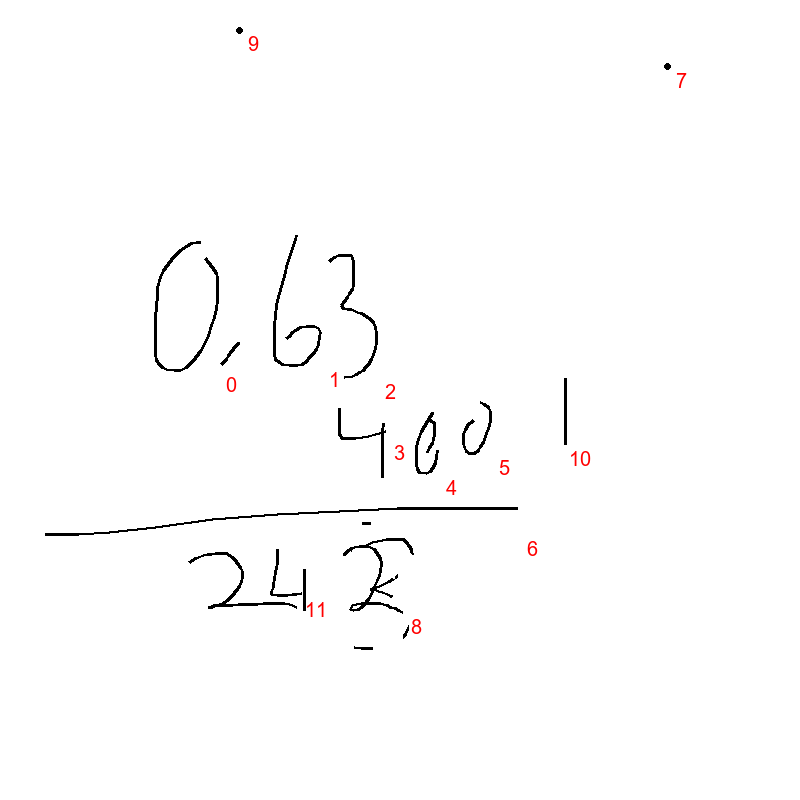 9
7
0,63
0 1 2
400 1
3 4 5 10
6
24
11 8